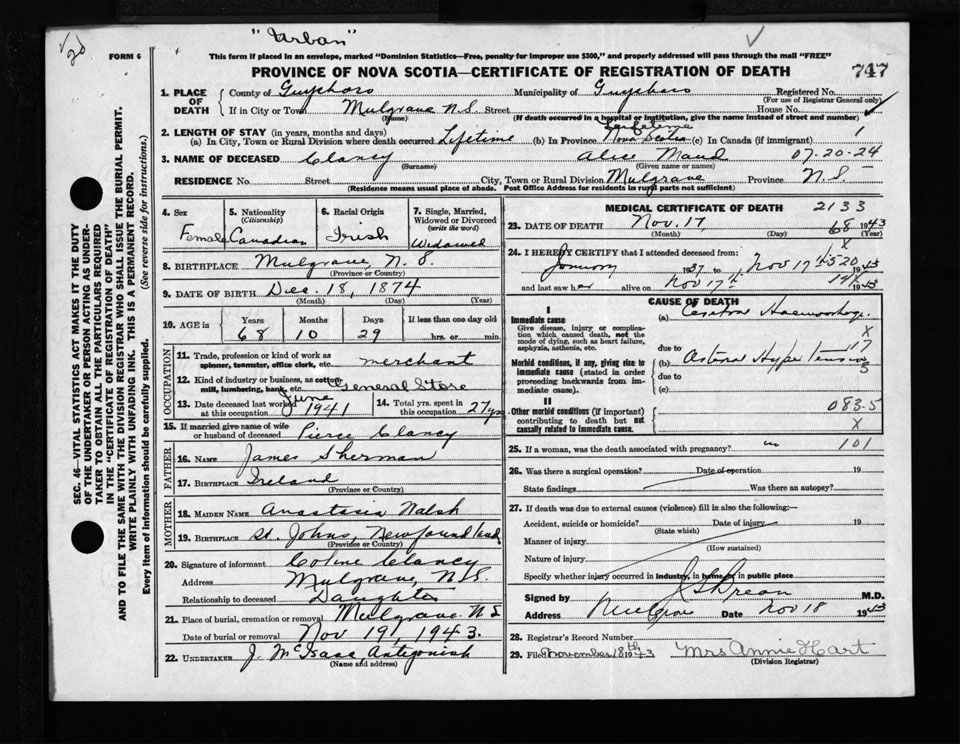 "Urban"
FORM 6
This form if placed in an envelope, marked "Dominion Statistics—Free, penalty for improper use $300," and properly addressed will pass through the mail "FREE"
PROVINCE OF NOVA SCOTIA—CERTIFICATE OF REGISTRATION OF DEATH 747
1. PLACE OF DEATH County of Guysboro Municipality of Guysboro Registered No.
(For use of Registrar General only)
If in City or Town Mulgrave N.S. Street House No.
(Name) (If death occurred in a hospital or institution, give the name instead of street and number)
2. LENGTH OF STAY (in years, months and days)
(a) In City, Town or Rural Division where death occurred Lifetime (b) In Province Lifetime Nova Scotia (c) In Canada (if immigrant) 1
3. NAME OF DECEASED Clancy Alice Maud 07-20-24
(Surname) (Given name or names)
RESIDENCE No. Street City, Town or Rural Division Mulgrave Province N.S.
(Residence means usual place of abode. Post Office Address for residents in rural parts not sufficient)
4. Sex Female
5. Nationality (Citizenship) Canadian
6. Racial Origin Irish
7. Single, Married, Widowed or Divorced (write the word) Widowed
8. BIRTHPLACE Mulgrave, N.S.
(Province or Country)
9. DATE OF BIRTH Dec. 18, 1874
(Month) (Day) (Year)
10. AGE in Years Months Days If less than one day old
68 10 29 hrs. or min.
OCCUPATION
11. Trade, profession or kind of work as spinner, teamster, office clerk, etc. merchant
12. Kind of industry or business, as cotton mill, lumbering, bank, etc. General Store
13. Date deceased last worked at this occupation June 1941
14. Total yrs. spent in this occupation 27 yrs
15. If married give name of wife or husband of deceased Pierce Clancy
FATHER
16. NAME James Sherman
17. BIRTHPLACE Ireland
(Province or Country)
MOTHER
18. MAIDEN NAME Anastasia Walsh
19. BIRTHPLACE St. Johns, Newfoundland
(Province or Country)
20. Signature of informant Clancy
Address Mulgrave, N.S.
Relationship to deceased Daughter
21. Place of burial, cremation or removal Mulgrave N.S
Date of burial or removal Nov 19, 1943.
22. UNDERTAKER J. McIsaac Antigonish
(Name and address)
MEDICAL CERTIFICATE OF DEATH 2133
23. DATE OF DEATH Nov. 17, 68 1943
(Month) (Day) (Year)
24. I HEREBY CERTIFY that I attended deceased from:
January 1937 to Nov 17 1943
and last saw her alive on Nov 17th 1943
CAUSE OF DEATH
I
Immediate cause
Give disease, injury or complication which caused death, not the mode of dying, such as heart failure, asphyxia, asthenia, etc.
(a) Cerebral Haemorrhage
due to
Morbid conditions, if any, giving rise to immediate cause (stated in order proceeding backwards from immediate cause).
(b) Hypertension
due to
(c)
II
Other morbid conditions (if important) contributing to death but not causally related to immediate cause.
083.5
X
25. If a woman, was the death associated with pregnancy? no 101
26. Was there a surgical operation? Date of operation 19
State findings Was there an autopsy?
27. If death was due to external causes (violence) fill in also the following:—
Accident, suicide or homicide? Date of injury 19
(State which)
Manner of injury
(How sustained)
Nature of injury
Specify whether injury occurred in industry, in home, in public place
Signed by M.D.
Address Mulgrave Date Nov 18 1943
28. Registrar's Record Number
29. Filed November 18th 1943 Mrs Annie Hart
(Division Registrar)
SEC. 46—VITAL STATISTICS ACT MAKES IT THE DUTY
OF THE UNDERTAKER OR PERSON ACTING AS UNDERTAKER
TO OBTAIN ALL THE PARTICULARS REQUIRED
IN THE "CERTIFICATE OF REGISTRATION OF DEATH"
AND TO FILE THE SAME WITH THE DIVISION REGISTRAR WHO SHALL ISSUE THE BURIAL PERMIT.
WRITE PLAINLY WITH UNFADING INK. THIS IS A PERMANENT RECORD.
Every item of information should be carefully supplied. (See reverse side for instructions.)